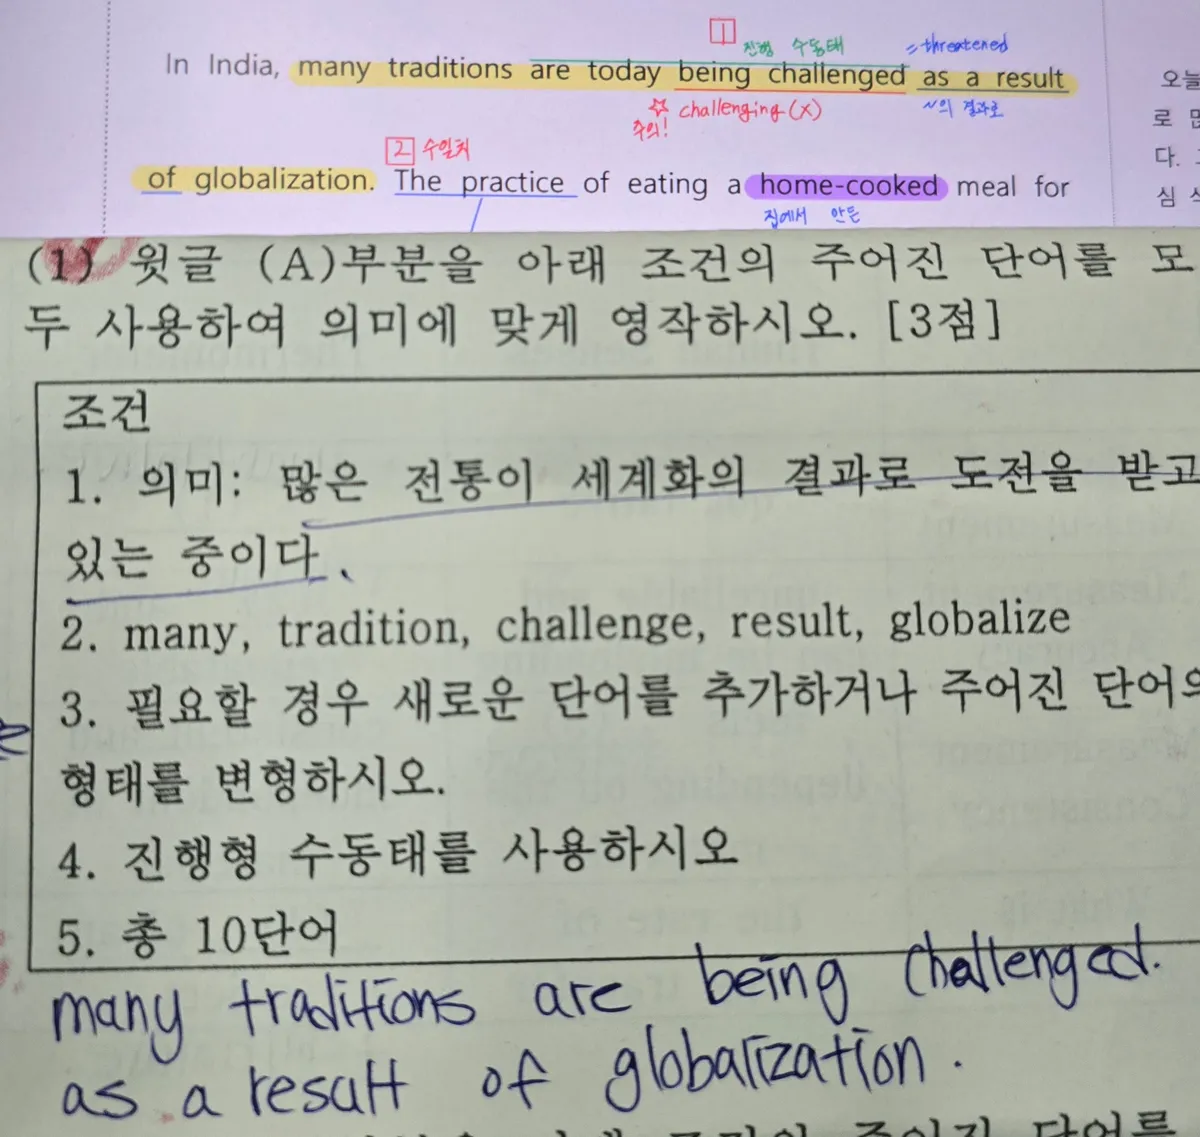 1
진행 수동태 = threatened
In India, many traditions are today being challenged as a result
오늘
☆ challenging (X) ~의 결과로
주의!
로 많
2 수일치
다.
of globalization. The practice of eating a home-cooked meal for
심 식
집에서 만든
(1) 윗글 (A)부분을 아래 조건의 주어진 단어를 모
두 사용하여 의미에 맞게 영작하시오. [3점]
조건
1. 의미: 많은 전통이 세계화의 결과로 도전을 받고
있는 중이다.
2. many, tradition, challenge, result, globalize
3. 필요할 경우 새로운 단어를 추가하거나 주어진 단어의
형태를 변형하시오.
4. 진행형 수동태를 사용하시오
5. 총 10단어
many traditions are being challenged.
as a result of globalization.
주어진 단어를